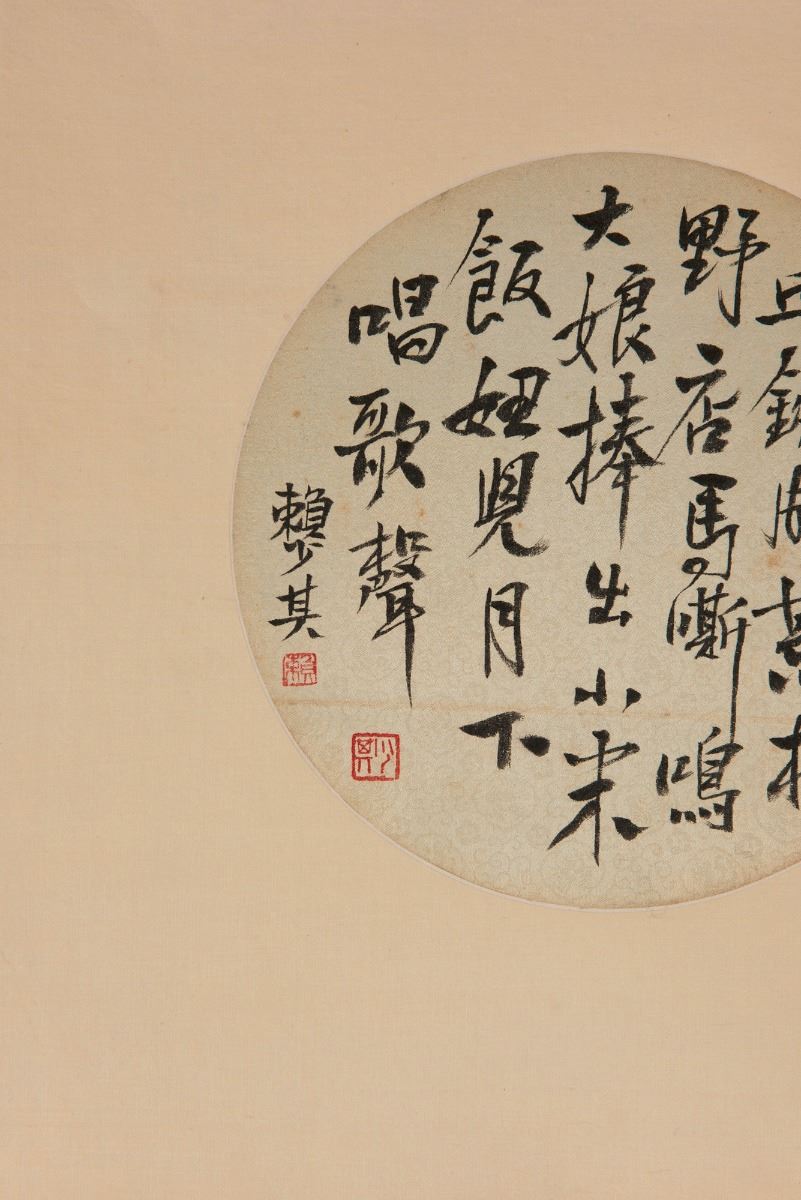 野店馬嘶鳴
大娘捧出小米
飯妞兒月下
唱歌聲
賴少其
少其